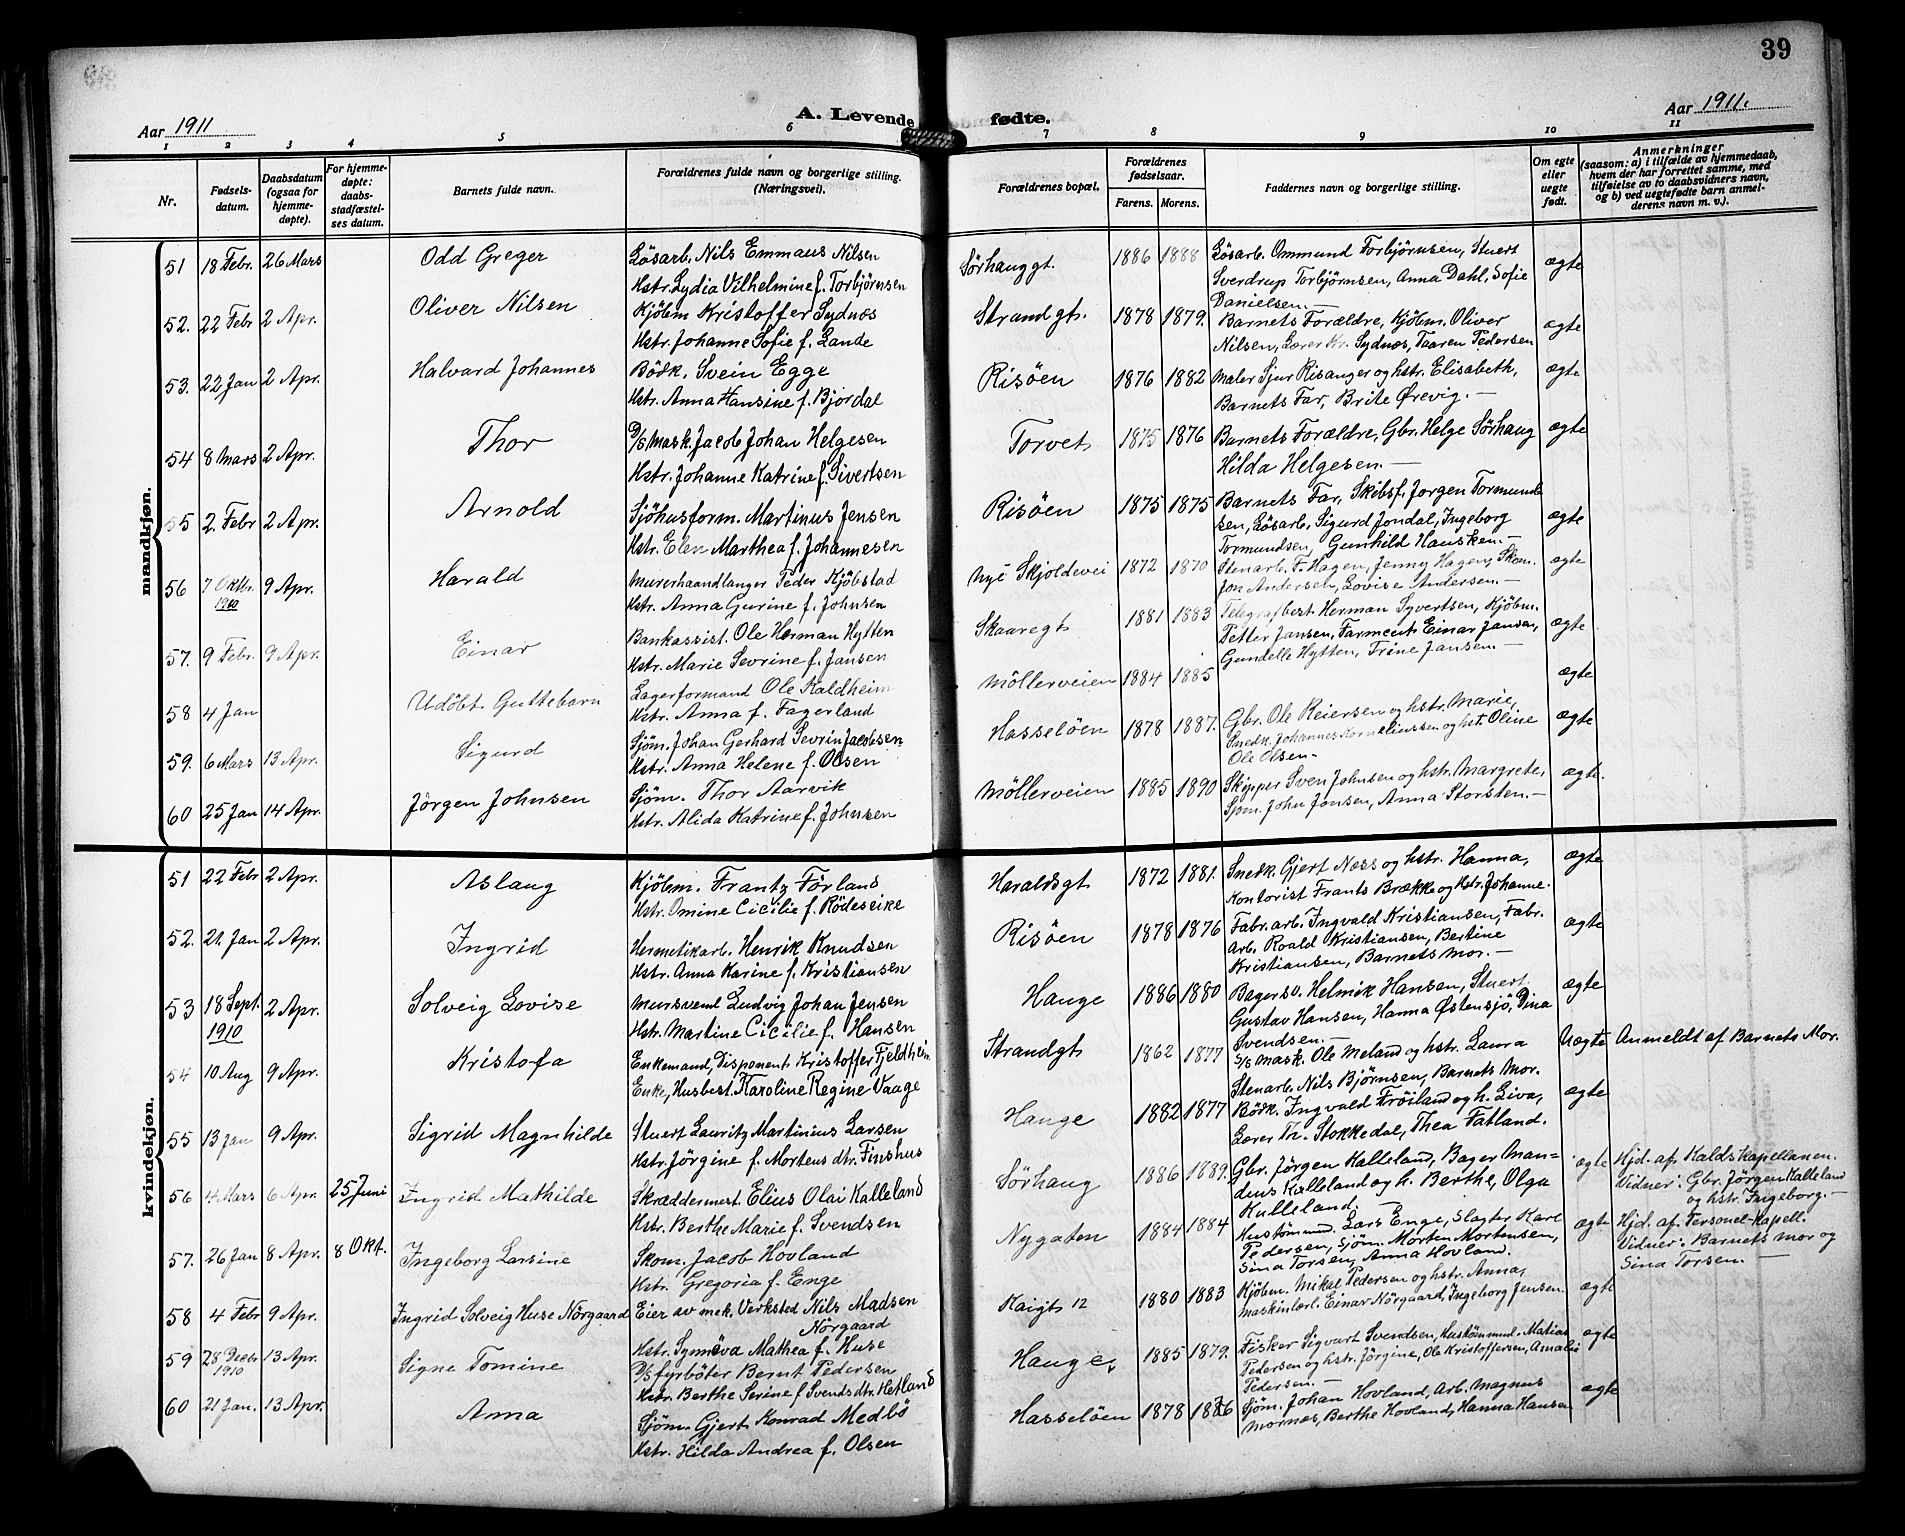 39
Aar 1911
A. Levende fødte.
Aar 1911.
1 2 3 4 5 6 7 8 9 10 11
Nr.
Fødsels-
datum.
Daabsdatum
(ogsaa for
hjemme-
døpte).
For hjemme-
døpte:
daabs-
stadfæstel-
ses datum.
Barnets fulde navn.
Forældrenes fulde navn og borgerlige stilling.
(Næringsvei).
Forældrenes bopæl.
Forældrenes
fødselsaar.
Farens. Morens.
Faddernes navn og borgerlige stilling.
Om egte
eller
uegte
født.
Anmerkninger
(saasom: a) i tilfælde av hjemmedaab,
hvem der har forrettet samme, med
tilføielse av to daabsvidners navn,
og b) ved uegtefødte barn anmel-
derens navn m. v.).
mandkjøn.
51 18 Febr. 26 Mars Odd Greger Lösarb. Nils Emmaus Nilsen
Hstr. Lydia Vilhelmine f. Torbjörnsen
Sörhauggt. 1886 1888 Lösarb. Ommund Torbjörnsen, Stuert
Sverdrup Torbjörnsen, Anna Dahl, Sofie
Danielsen. —
ægte
52. 22 Febr 2 Apr. Oliver Nilsen Kjöbm Kristoffer Sydnæs
Hstr. Johanne Sofie f. Lande
Strandgt. 1878 1879. Barnets Forældre, Kjöbm. Oliver
Nilsen, Lærer Kr. Sydnæs, Taaren Pedersen
ægte
53. 22 Jan 2 Apr. Halvard Johannes Bödk. Svein Egge
Hstr. Anna Hansine f. Bjordal
Risöen 1876 1882 Maler Sjur Risanger og hstr. Elisabeth,
Barnets Far, Brite Ørevig. —
ægte
54 8 Mars 2 Apr. Thor D/S Mask. Jacob Johan Helgesen
Hstr. Johanne Katrine f. Sivertsen
Torvet 1875 1876 Barnets Forældre, Gbr. Helge Sörhaug
Hilda Helgesen. —
ægte
55 2. Febr 2 Apr. Arnold Sjöhusform. Martinus Jensen
Hstr. Elen Marthea f. Johannesen
Risöen 1875 1875 Barnets Far, Skibsf. Jorgen Tormund
sen, Lösarb. Sigurd Jondal, Ingeborg
Tormundsen, Gunhild Hausken. —
ægte
56 7 Oktbr. 1910 9 Apr. Harald Murerhaandlanger Peder Kjöbstad
Hstr. Anna Gurine f. Johnsen
Nye Skjoldevei 1872 1870 Stenarb. F. Hagen, Jenny Hagen, Skom.
Jon Andersen, Lovise Andersen. —
ægte
57. 9 Febr. 9 Apr. Einar Bankassist. Ole Herman Hytten
Hstr. Marie Sevrine f. Jansen
Skaaregt 1881 1883 Telegrafbest. Herman Syvertsen, Kjöbm.
Petter Jansen, Farmceut Einar Jansen,
Gundelle Hytten, Trine Jansen. —
ægte
58 4 Jan Udöbt Guttebarn Lagerformand Ole Kaldheim
Hstr. Anna f. Fagerland
Möllerveien 1884 1885 ægte
59. 6 Mars 13 Apr. Sigurd Sjöm. Johan Gerhard Sevrin Jacobsen
Hstr. Anna Helene f. Olsen
Hasselöen 1878 1887. Gbr. Ole Reiersen og hstr. Marie,
Snedk. Johannes Korneliussen og hst. Oline
Ole Olsen. —
ægte
60 25 Jan 14 Apr. Jörgen Johnsen Sjöm. Thor Aarvik
Hstr. Alida Katrine f. Johnsen
Möllerveien 1885 1890 Skipper Sven Johnsen og hstr. Margrete,
Sjöm. John Jonsen, Anna Storsten. —
ægte.
kvindekjøn.
51 22 Febr 2 Apr. Aslaug Kjöbm. Frantz Förland
Hstr. Omine Cicilie f. Rödeseike
Haraldsgt 1872 1881. Snedk. Gjert Næss og hstr. Hanna,
Kontorist Frants Brække og Hstr. Johanne.
ægte
52. 21. Jan 2 Apr. Ingrid Hermetikarb. Henrik Knudsen
Hstr. Anna Karine f. Kristiansen
Risöen 1878 1876 Fabr. arb. Ingvald Kristiansen, Fabr.
arb. Roald Kristiansen, Bertine
Kristiansen, Barnets Mor. —
ægte
53 18 Sept. 1910 2 Apr. Solveig Lovise Mursveml Ludvig Johan Jensen
Hstr. Martine Cicilie f. Hansen
Hauge 1886 1880 Bagersv. Helmik Hansen, Stuert
Gustav Hansen, Hanna Östensjö, Dina
Svendsen. —
ægte
54 10 Aug 9 Apr. Kristofa Enkemand, Disponent Kristoffer Fjeldheim
Enke, Husbest. Karoline Regine Vaage
Strandgt 1862 1877 S/S Mask Ole Meland og hstr. Laura
Stenarb. Nils Björnsen, Barnets Mor.
Uægte Anmeldt af Barnets Mor.
55 13 Jan 9 Apr. Sigrid Magnhilde Stuert Lauritz Martinius Larsen
Hstr. Jörgine f. Mortens dtr. Finshus
Hauge 1882 1877 Bödk. Ingvald Fröiland og h. Liva,
Lærer Th. Stokkedal, Thea Fatland.
ægte
56 4 Mars 6 Apr. 25 Juni Ingrid Mathilde Skræddermest. Elius Olai Kalleland
Hstr. Berthe Marie f. Svendsen
Sörhaug 1886 1889. Gbr. Jörgen Kalleland, Bager Man-
dius Kalleland og h. Berthe, Olga
Kalleland.
ægte Hjd. af. Kaldskapellanen.
Vidner: Gbr. Jörgen Kalleland
og hstr. Ingeborg. —
57. 26 Jan 8 Apr. 8 Okt. Ingeborg Larsine Skom. Jacob Hovland
Hstr. Gregoria f. Enge
Nygaten 1884 1884 Hustömmd. Lars Enge, Slagter Karl
Pedersen, Sjöm. Morten Mortensen,
Sina Torsen, Anna Hovland.
ægte Hjd. af. Personel-Kapell.
Vidner: Barnets mor og
Sina Torsen. —
58 4 Febr 9 Apr. Ingrid Solveig Huse Nörgaard Eier av mek. Verksted Nils Madsen
Nörgaard
Hstr. Synnöva Mathea f. Huse
Kaigt 12 1880 1883 Kjöbm. Mikal Pedersen og hstr. Anna,
Maskinlærl. Einar Nörgaard, Ingeborg Jensen.
ægte
59 28 Decbr 1910 13 Apr. Signe Tomine D/S fyrböter Bernt Pedersen
Hstr. Berthe Serine f. Svendsdtr. Hetland
Hauge 1885 1879. Fisker Sigvart Svendsen, Hustömmd. Matias
Pedersen og hstr. Jörgine, Ole Kristoffersen, Amalie
Pedersen. —
ægte
60 21 Jan. 13 Apr. Anna Sjöm. Gjert Konrad Medbö
Hstr. Hilda Andrea f. Olsen
Hasselöen 1878 1886 Sjöm. Johan Hovland, Arb. Magnus
Mornæs, Berthe Hovland, Hanna Hansen
ægte